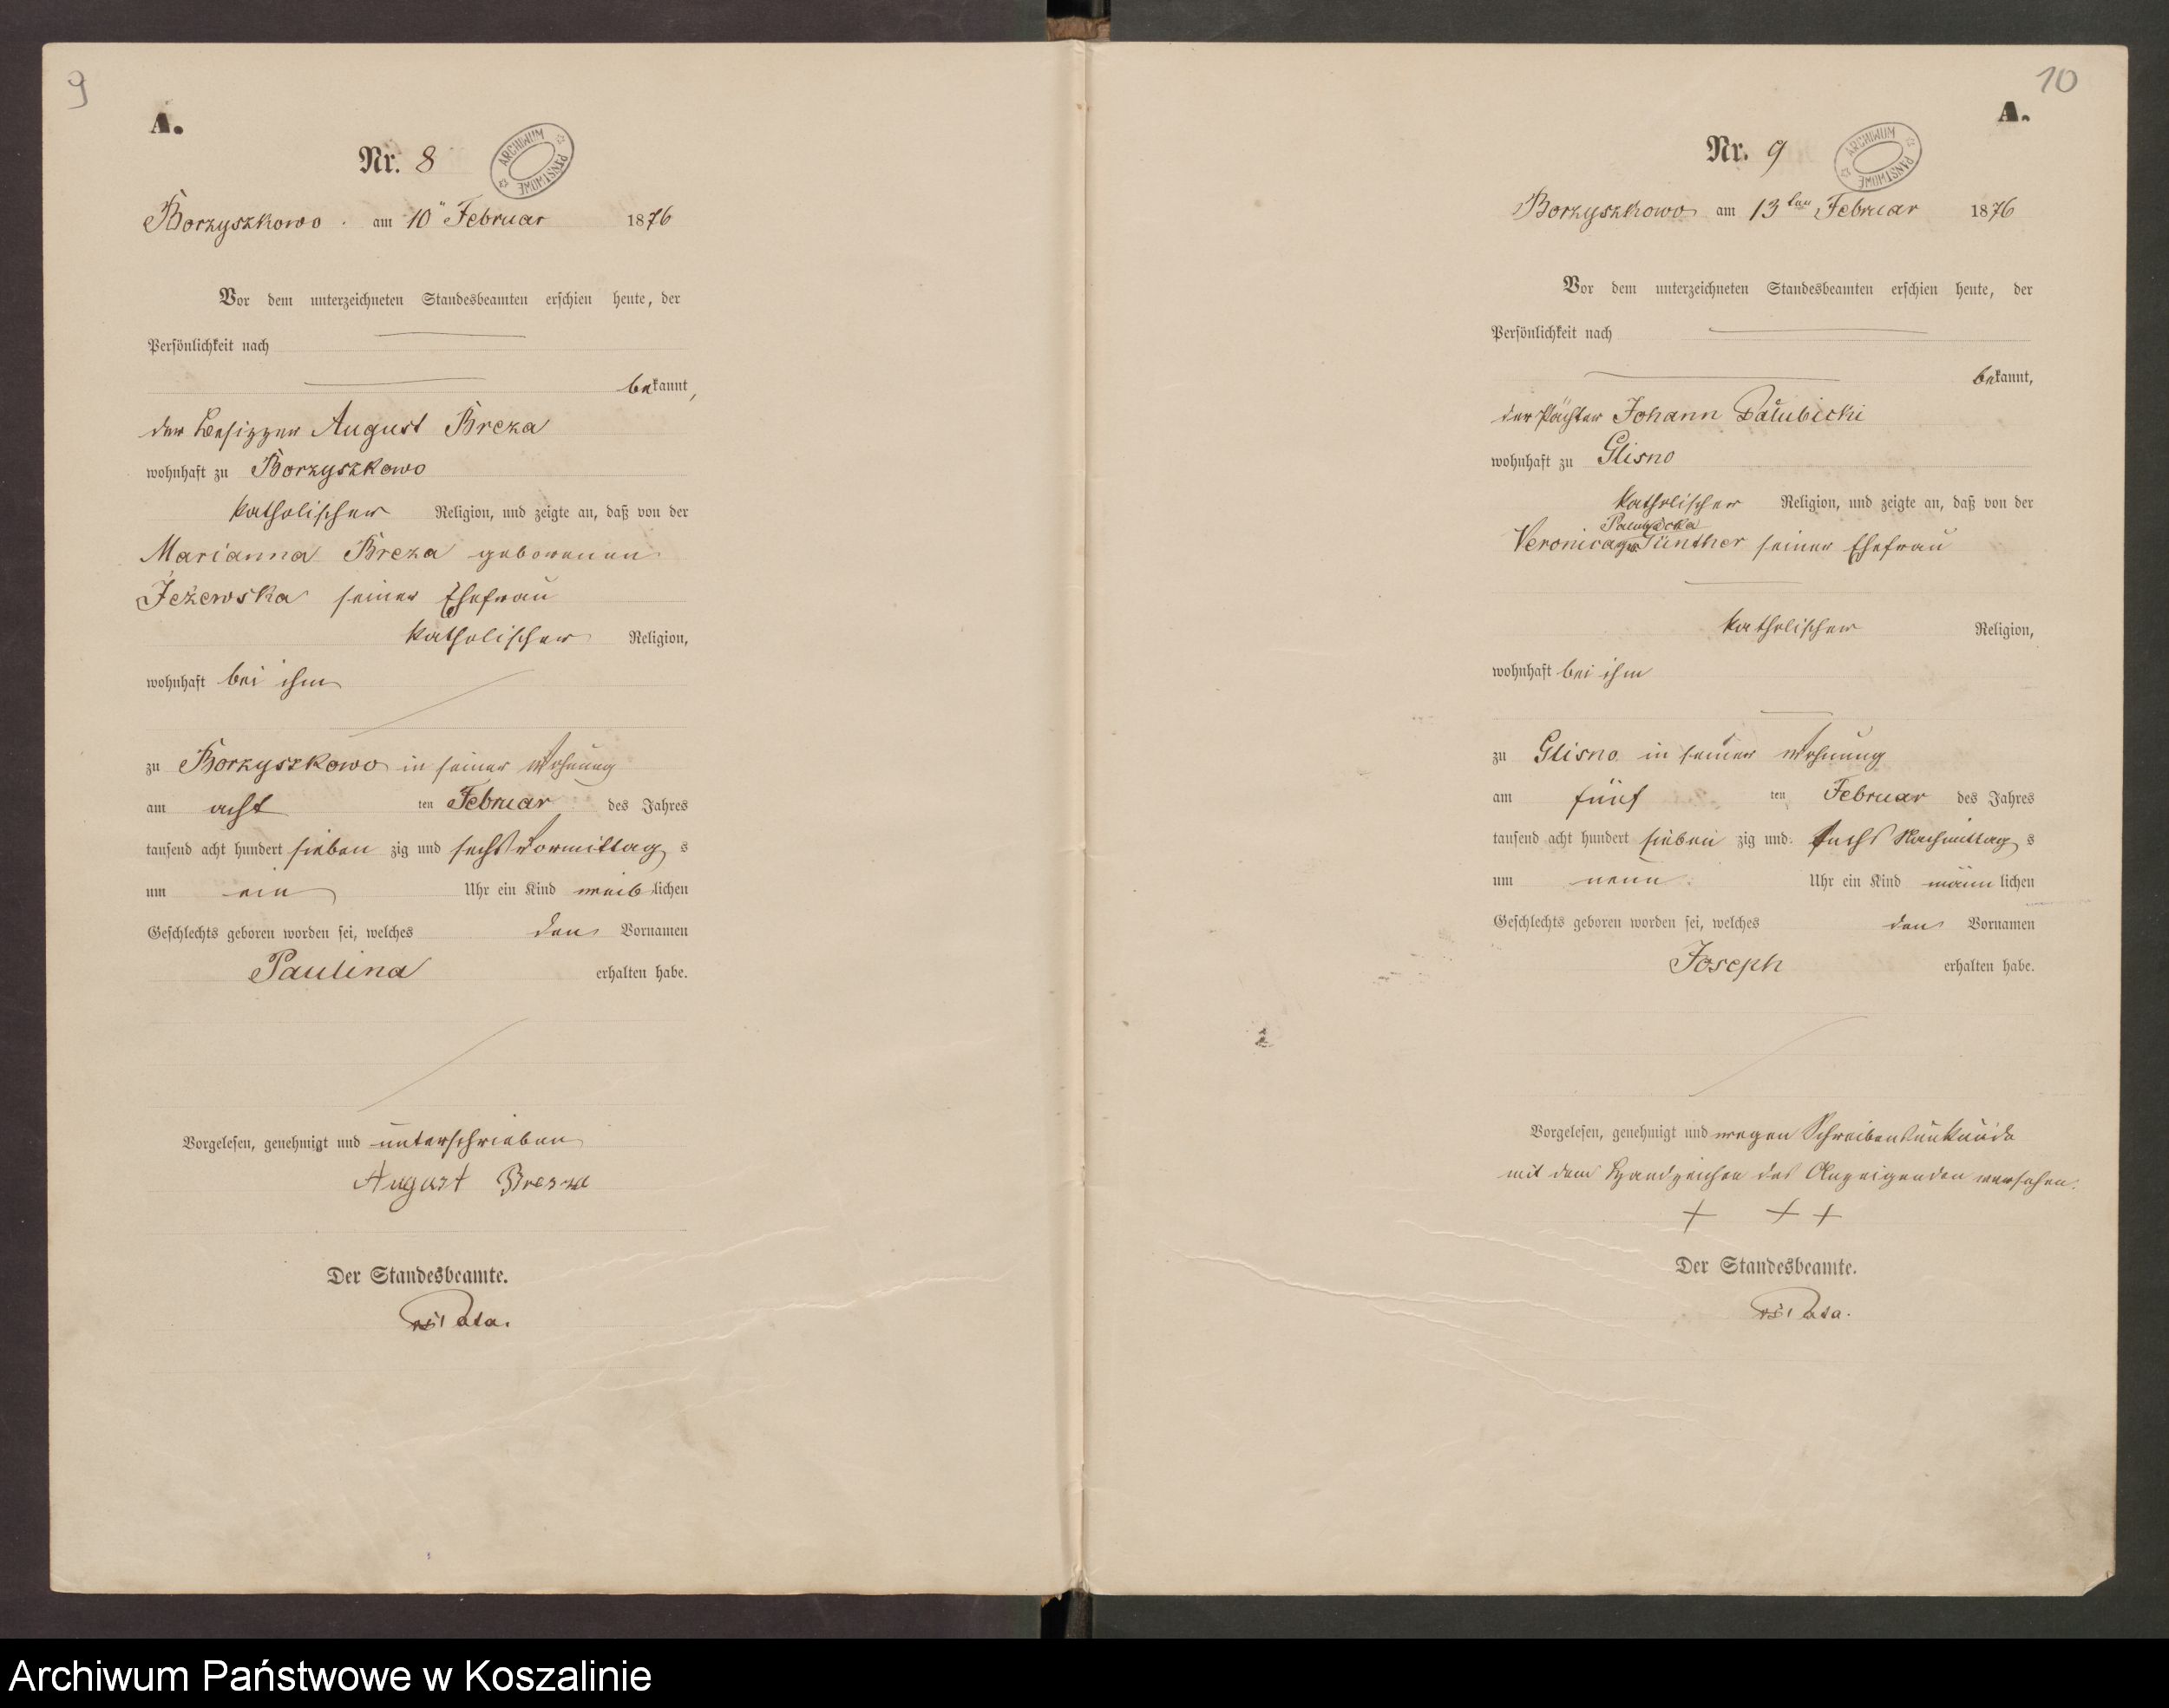 9
A.
Nr. 8
ARCHIWUM PAŃSTWOWE
Borzyszkowo. am 10" Februar 1876
Vor dem unterzeichneten Standesbeamten erschien heute, der
Persönlichkeit nach
bekannt,
der Besitzer August Breza
wohnhaft zu Borzyszkowo
katholischer Religion, und zeigte an, daß von der
Marianna Breza geborenen
Jeżewska seiner Ehefrau
katholischer Religion,
wohnhaft bei ihm
zu Borzyszkowo in seiner Wohnung
am acht ten Februar des Jahres
tausend acht hundert sieben zig und sechs Vormittag s
um ein Uhr ein Kind weib lichen
Geschlechts geboren worden sei, welches den Vornamen
Paulina erhalten habe.
Vorgelesen, genehmigt und unterschrieben
August Breza
Der Standesbeamte.
10
A.
Nr. 9
ARCHIWUM PAŃSTWOWE
Borzyszkowo am 13ten Februar 1876
Vor dem unterzeichneten Standesbeamten erschien heute, der
Persönlichkeit nach
bekannt,
der Pächter Johann Pałubicki
wohnhaft zu Glisno
katholischer Religion, und zeigte an, daß von der
Pałubicka
Veronica geb Günther seiner Ehefrau
katholischer Religion,
wohnhaft bei ihm
zu Glisno in seiner Wohnung
am fünf ten Februar des Jahres
tausend acht hundert sieben zig und sechs Nachmittag s
um neun Uhr ein Kind männ lichen
Geschlechts geboren worden sei, welches den Vornamen
Joseph erhalten habe.
Vorgelesen, genehmigt und wegen Schreibensunkunde
mit dem Handzeichen des Anzeigenden versehen.
+ + +
Der Standesbeamte.
Archiwum Państwowe w Koszalinie